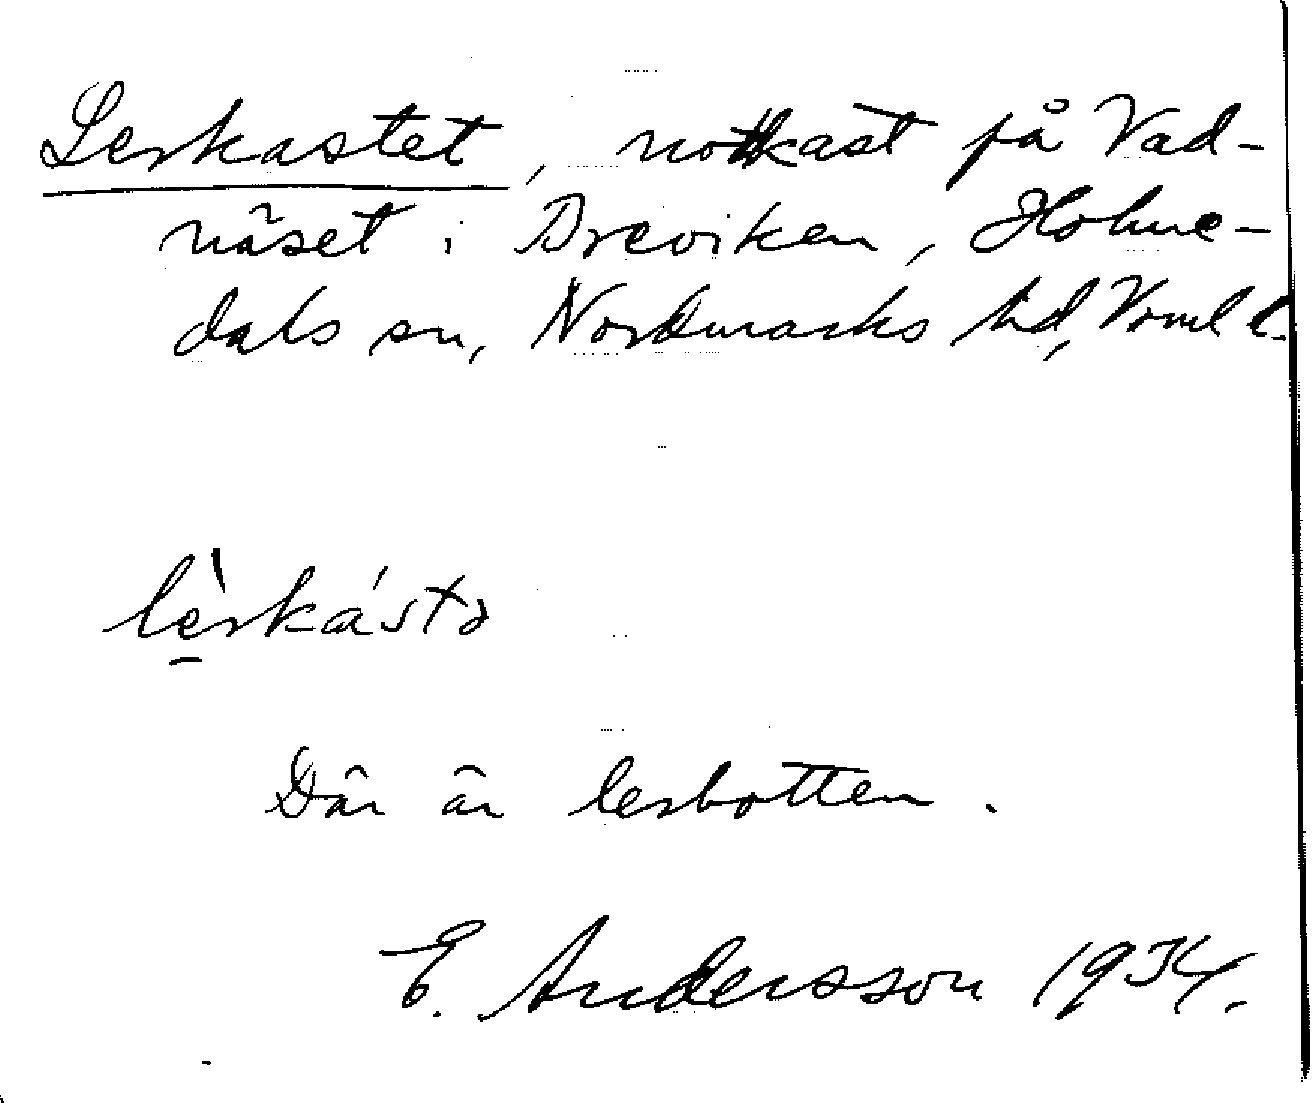 Lerkastet, notkast på Vad-
näset i Breviken, Holme-
dals sn, Nordmarks hd, Vrml l.
lèrkást
Där är lerbotten.
E. Andersson 1934.